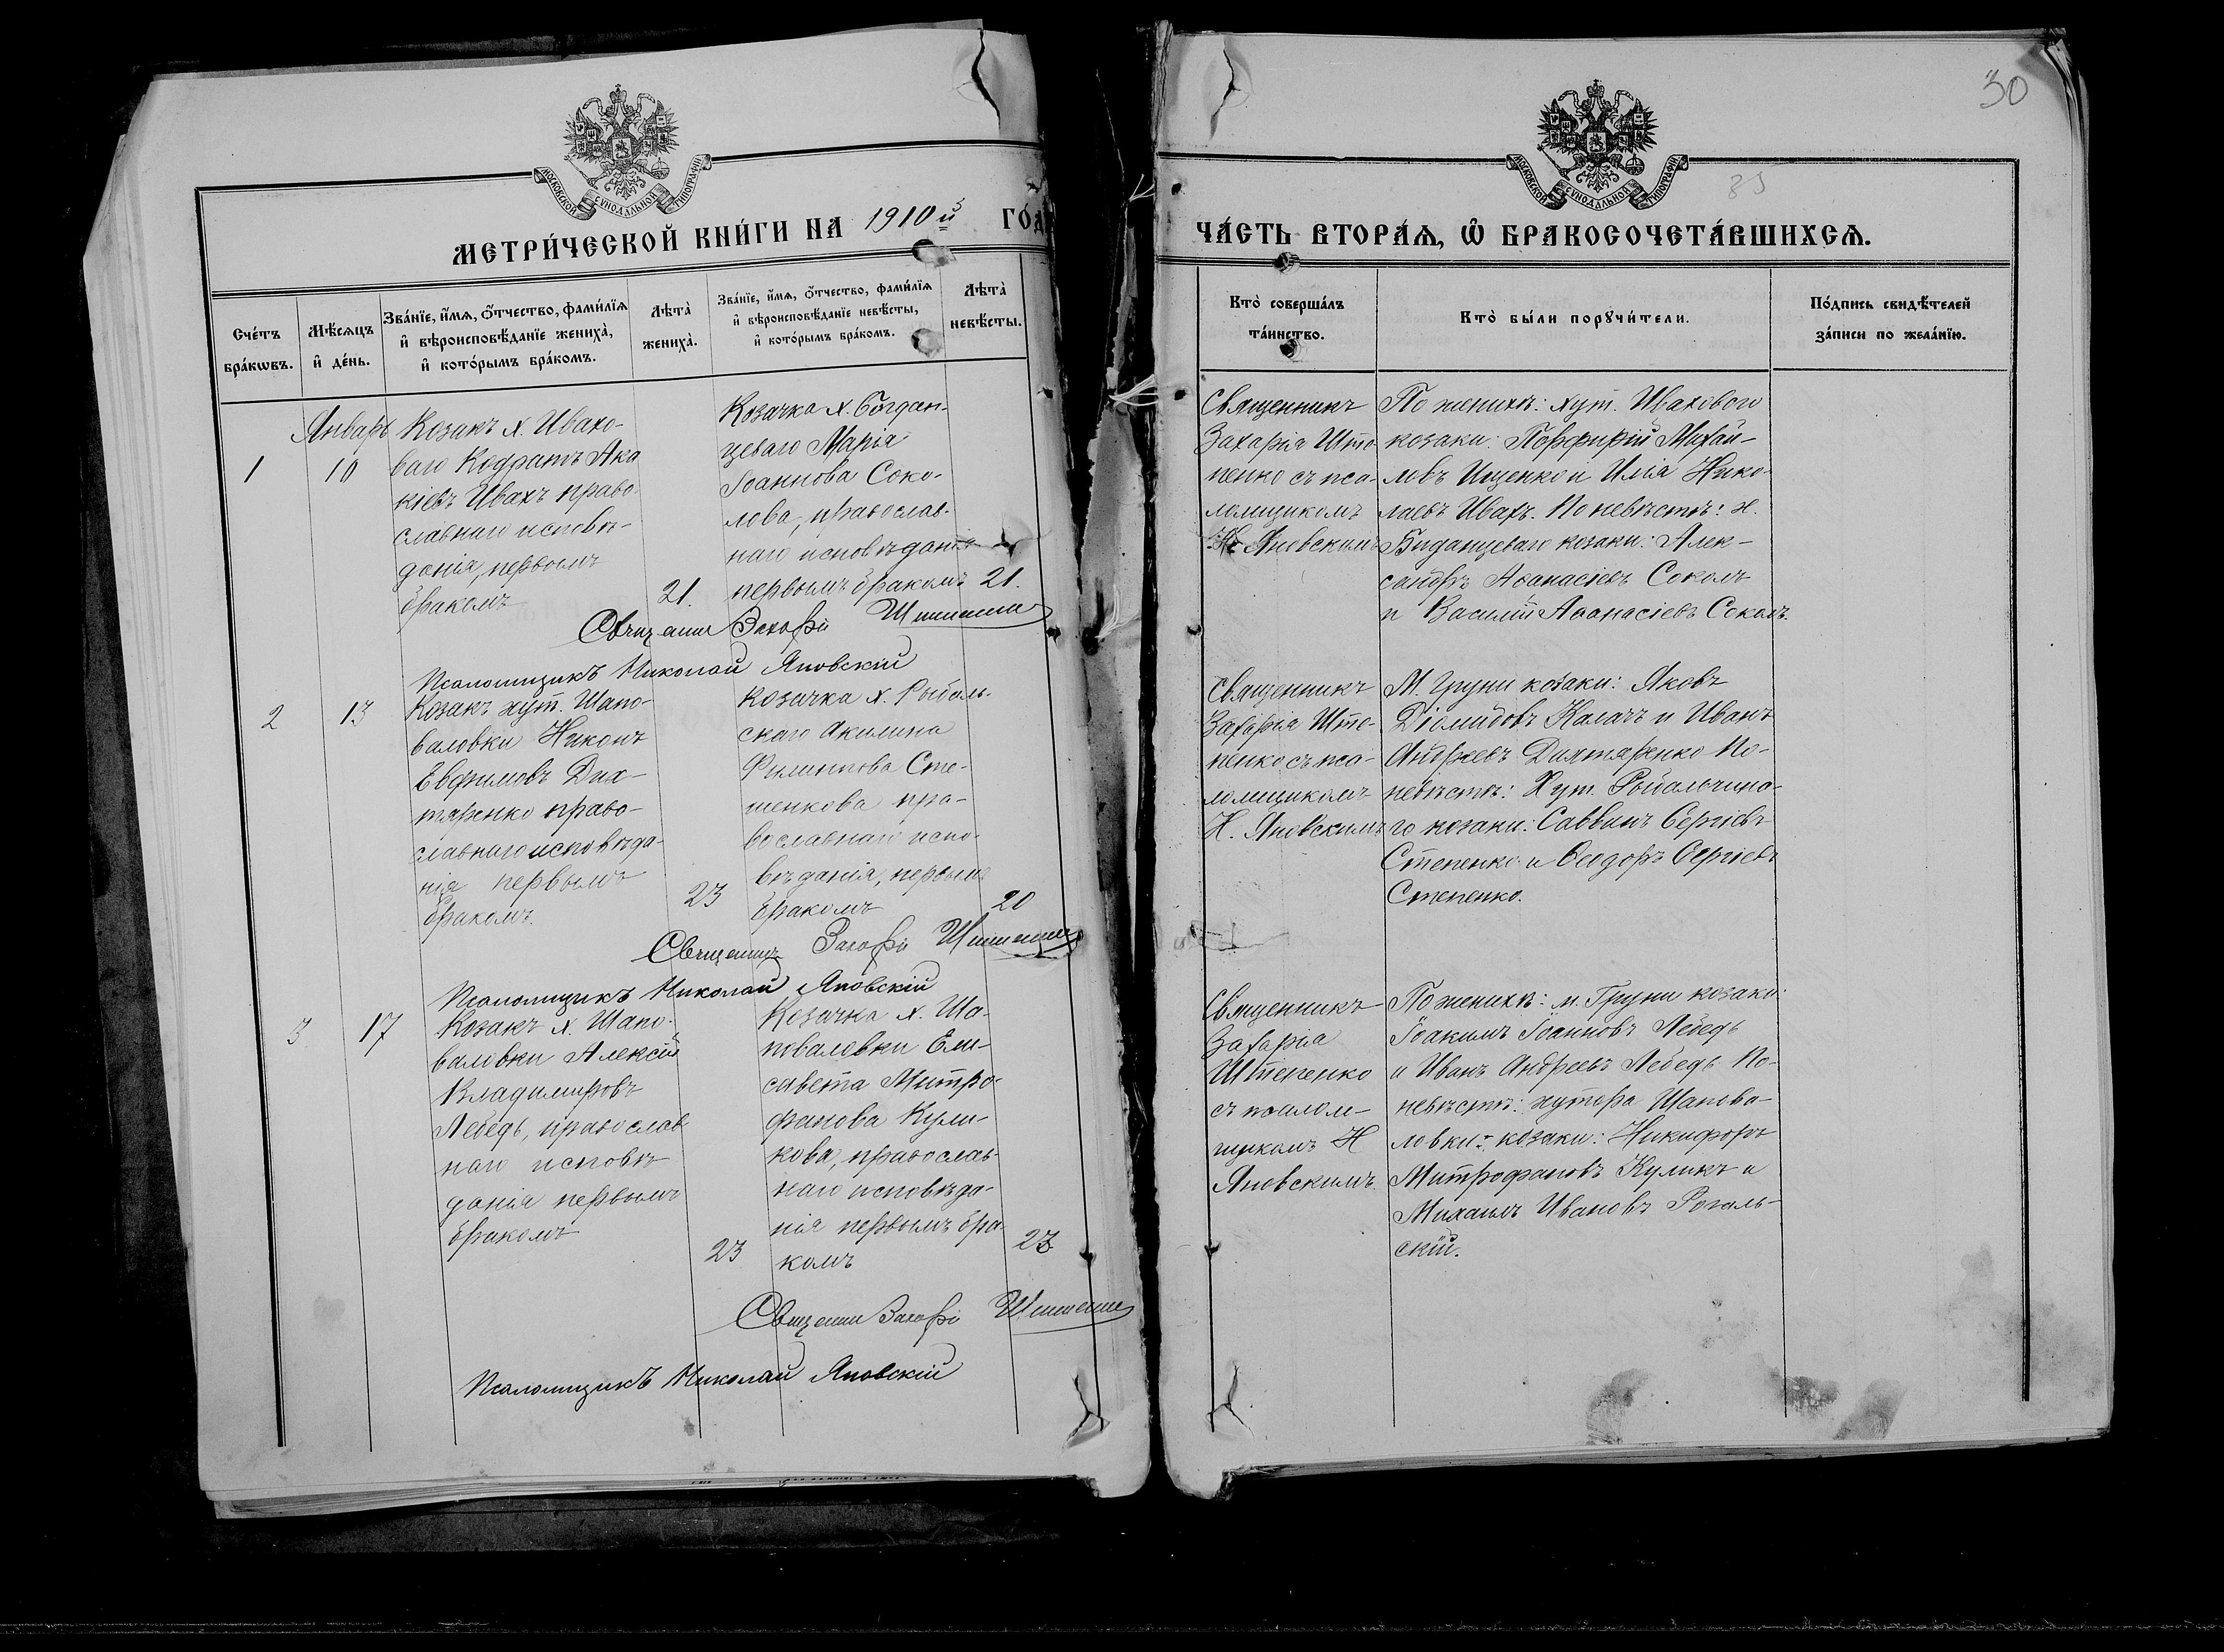 30
85
МОСКОВСКОЙ СУНОДАЛЬНОЙ ТИПОГРАФІИ
МЕТРИ́ЧЕСКОЙ КНИ́ГИ НА 1910й ГОД
Сче́тъ бра́кωвъ.
Мѣ́сяцъ и҆ де́нь.
Зва́нїе, и҆́мѧ, ѻ҆́тчество, фами́лїѧ
и҆ вѣроисповѣ́данїе жениха̀,
и҆ кото́рымъ бра́комъ.
Лѣта̀ жениха̀.
Зва́нїе, и҆́мѧ, ѻ҆́тчество, фами́лїѧ
и҆ вѣроисповѣ́данїе невѣ́сты,
и҆ кото́рымъ бра́комъ.
Лѣта̀ невѣ́сты.
1
Январь
10
Козакъ х. Ивахо-
ваго Кодратъ Ака
кіевъ Ивахъ право-
славнаго исповѣ-
данія, первымъ
бракомъ
21.
Козачка х. Богдан-
цеваго Марія
Іоаннова Соко-
лова, православ-
наго исповѣданія
первымъ бракомъ
21.
Псаломщикъ Николай Яновскій
2
13
Козакъ хут. Шапо-
валовки Никонъ
Евфимовъ Дих-
тяренко право-
славнаго исповѣда-
нія первымъ
бракомъ.
23
Козачка х. Рыбаль-
скаго Акилина
Филиппова Сте-
пенкова пра-
вославнаго испо-
вѣданія, первымъ
бракомъ
20
Псаломщикъ Николай Яновскій
3
17
Козакъ х. Шапо-
валовки Алексій
Владимировъ
Лебедь, православ
наго исповѣ
данія первымъ
бракомъ
23
Козачка х. Ша-
поваловки Ели-
савета Митро-
фанова Кули-
кова, православ-
наго исповѣда-
нія первымъ бра
комъ
23
Псаломщикъ Николай Яновскій
МОСКОВСКОЙ СУНОДАЛЬНОЙ ТИПОГРАФІИ
ЧА́СТЬ ВТОРА́Ѧ, Ѡ҆ БРАКОСОЧЕТА́ВШИХСѦ.
Кто̀ соверша́лъ
та́инство.
Кто̀ бы́ли порꙋчи́тели.
По́дпись свидѣ́телей
за́писи по жела́нїю.
Священникъ
Захарія Што-
пенко съ пса-
ломщикомъ
Н. Яновскимъ
По женихѣ: хут. Ивахового
козаки: Порфирій Михай-
ловъ Ищенко и Илія Нико-
лаевъ Ивахъ. По невѣстѣ: х.
Богданцеваго козаки: Алек-
сандръ Аѳанасіевъ Соколъ
и Василій Аѳанасіевъ Соколъ.
Священникъ
Захарія Што-
пенко съ пса-
ломщикомъ
Н. Яновскимъ
М. Груни козаки: Яковъ
Діомидовъ Калачъ и Иванъ
Андреевъ Дихтяренко По-
невѣстѣ: Хут. Рыбальчина-
го козаки: Саввинъ Сергіевъ
Степенко и Ѳеодоръ Сергіевъ
Степенко.
Священникъ
Захарія
Штепенко
съ псалом-
щикомъ Н
Яновскимъ.
По женихѣ: м. Груни козаки:
Іоакимъ Іоанновъ Лебедь
и Иванъ Андреевъ Лебедь По-
невѣстѣ: хутора Шапова-
ловки: козаки: Никифоръ
Митрофановъ Куликъ и
Михаилъ Ивановъ Рогаль-
скій.